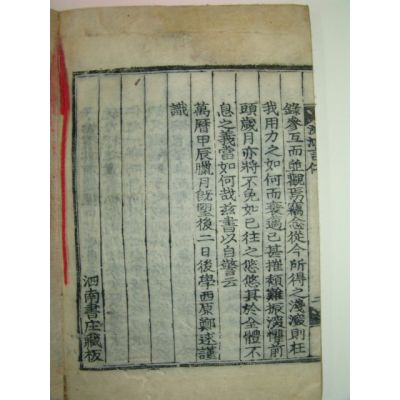 錄參互而並觀焉竊念從今所得之淺深則在
我用力之如何而衰邁已甚摧頹難振深懼前
頭歲月亦將不免如已往之悠悠其於全體不
息之義當如何哉玆書以自警云
萬曆甲辰臘月旣望後二日後學西原鄭逑謹
識
泗南書庄藏板